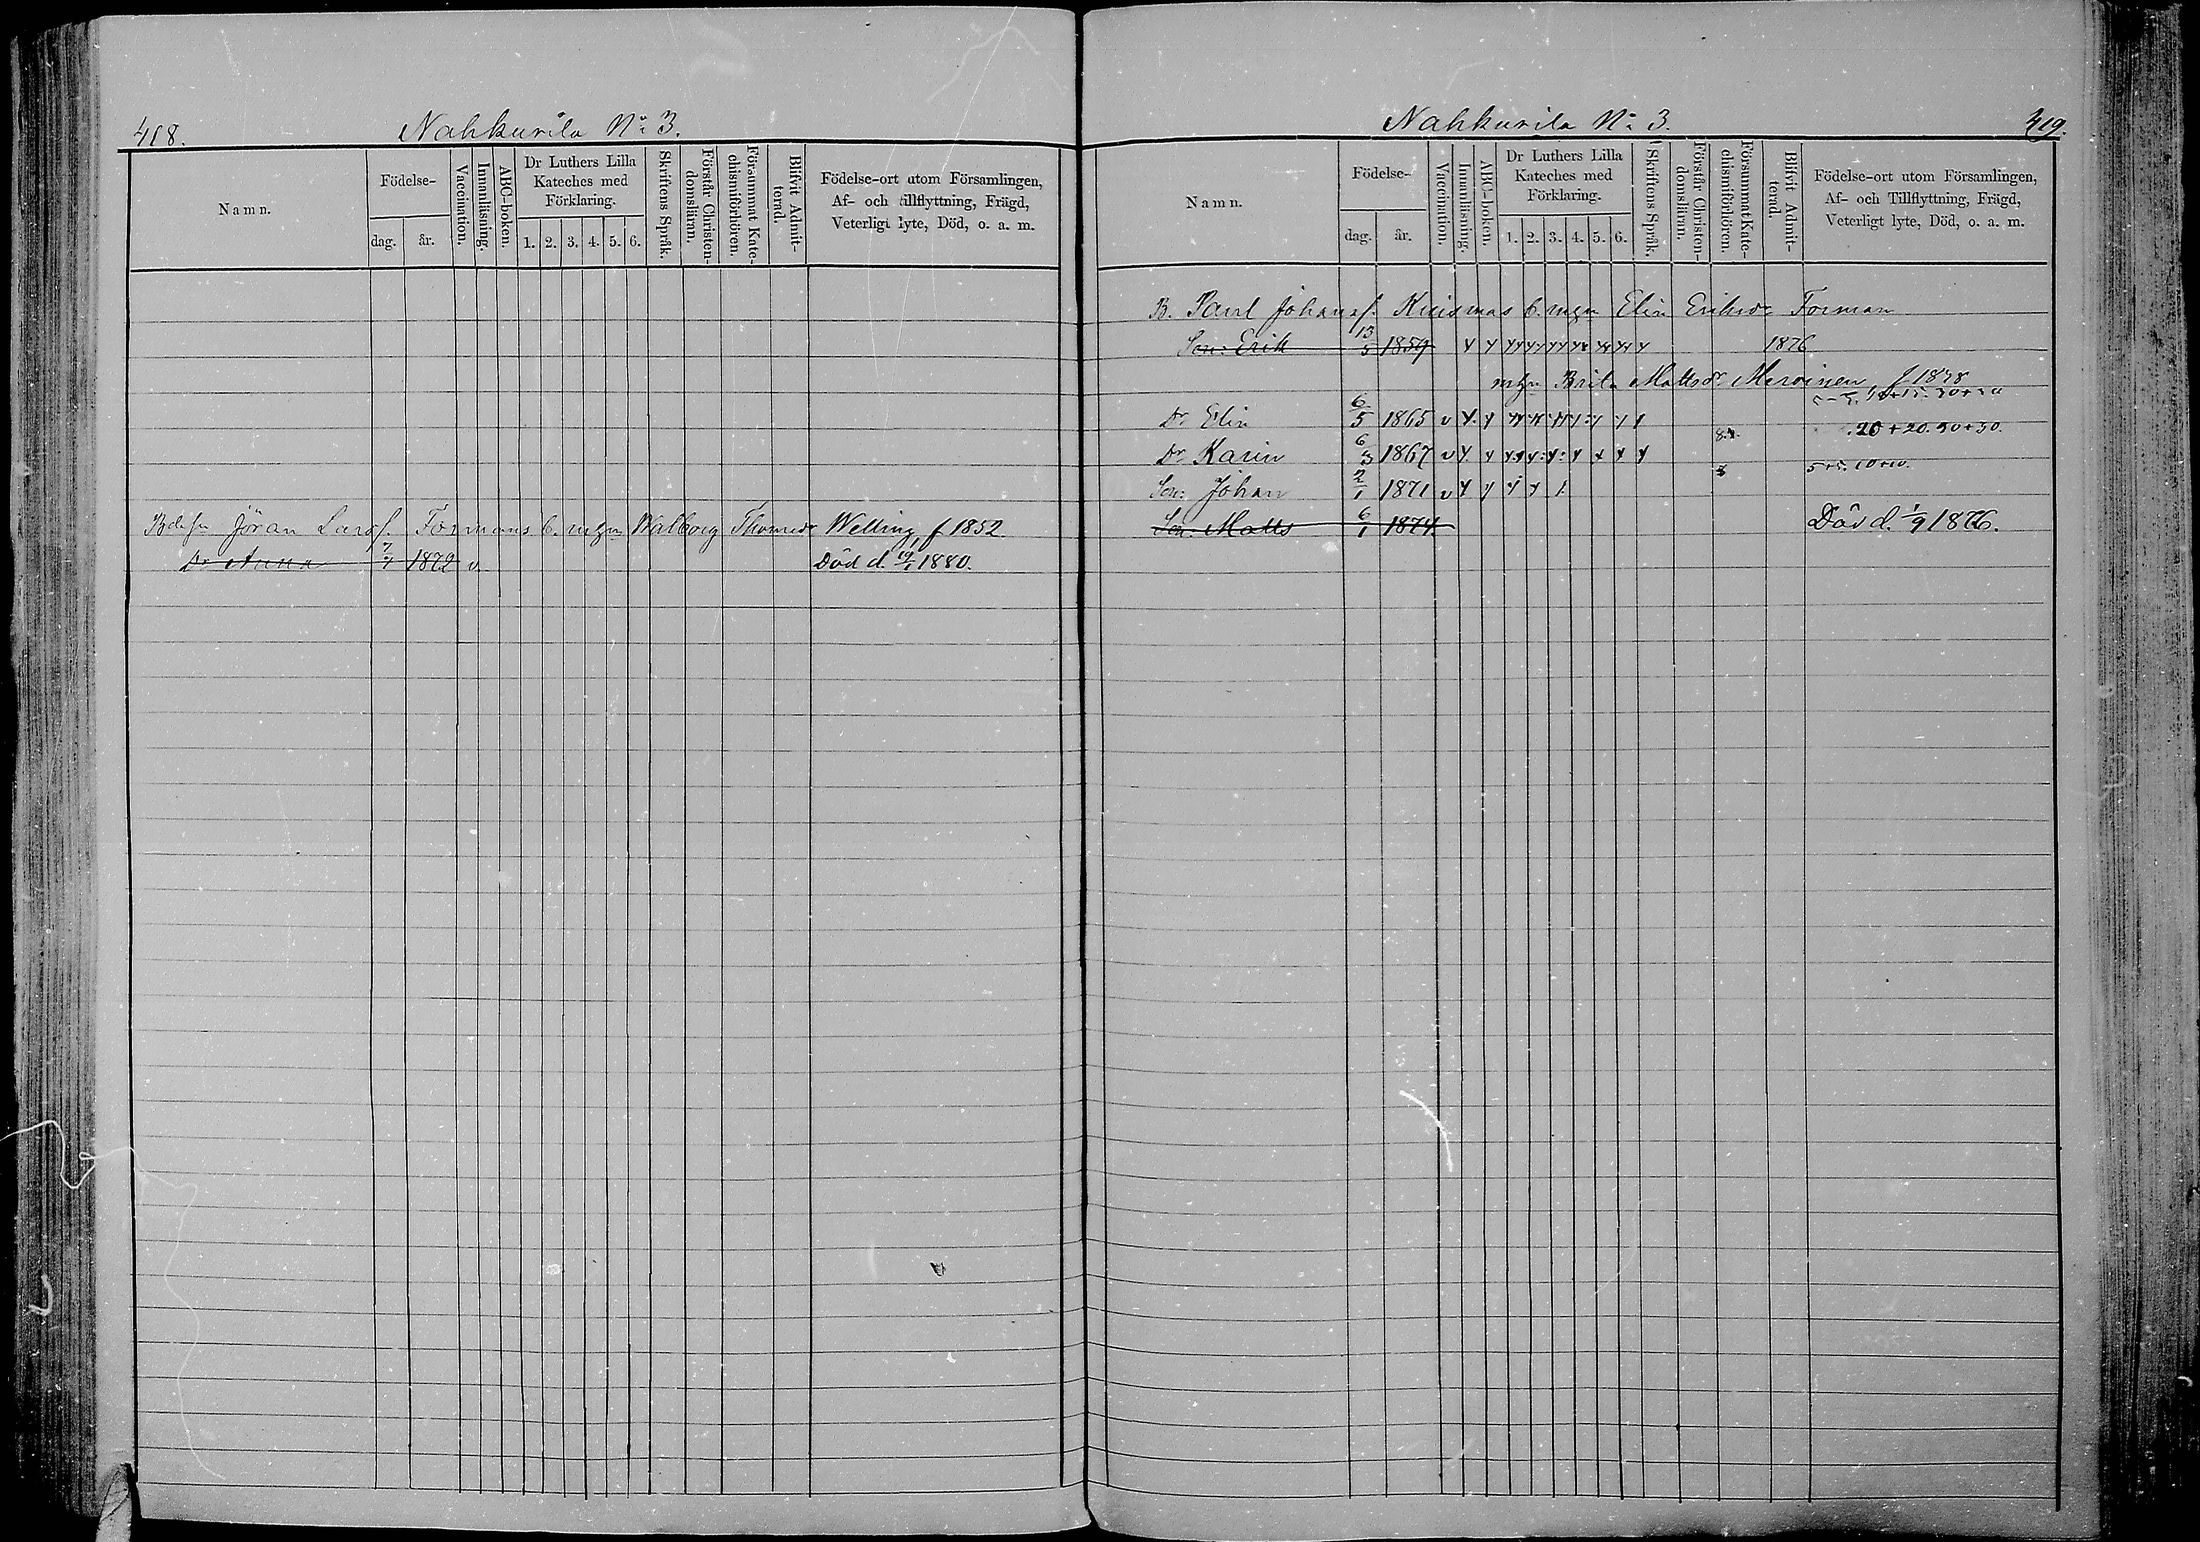 418.
Nahkurila No 3.
Namn.
Födelse-
dag.
år.
Vaccination.
Innanläsning.
ABC-boken.
Dr Luthers Lilla
Kateches med
Förklaring.
1. 2. 3. 4. 5. 6.
Skriftens Språk.
Förstår Christen-
domsläran.
Försummat Kate-
chismiförhören.
Blifvit Admit-
terad.
Födelse-ort utom Församlingen,
Af- och tillflyttning, Frägd,
Veterligt lyte, Död, o. a. m.
Jöran Larsf. Formans b. m hu Walborg Thomasdr Welling, f 1852.
Dr Anna 1872 v. Död d. 19/1 1880.
Nahkurila No 3.
419.
Namn.
Födelse-
dag.
år.
Vaccination.
Innanläsning.
ABC-boken.
Dr Luthers Lilla
Kateches med
Förklaring.
1. 2. 3. 4. 5. 6.
Skriftens Språk.
Förstår Christen-
domsläran.
Försummat Kate-
chismiförhören.
Blifvit Admit-
terad.
Födelse-ort utom Församlingen,
Af- och Tillflyttning, Frägd,
Veterligt lyte, Död, o. a. m.
B. Paul Johansf. Kuismas b. Elin Eriksdr Forman
Son: Erik 13/5 1859 1876
Brita Mattsdr f 1848
Dr Elin 6/5 1865 v
Dr Karin 6/3 1867 v 20+20.50+50.
Son: Johan 2/1 1871 v 5+5.10+10.
Son: Matts 6/1 1874. Död d. 1/9 1876.